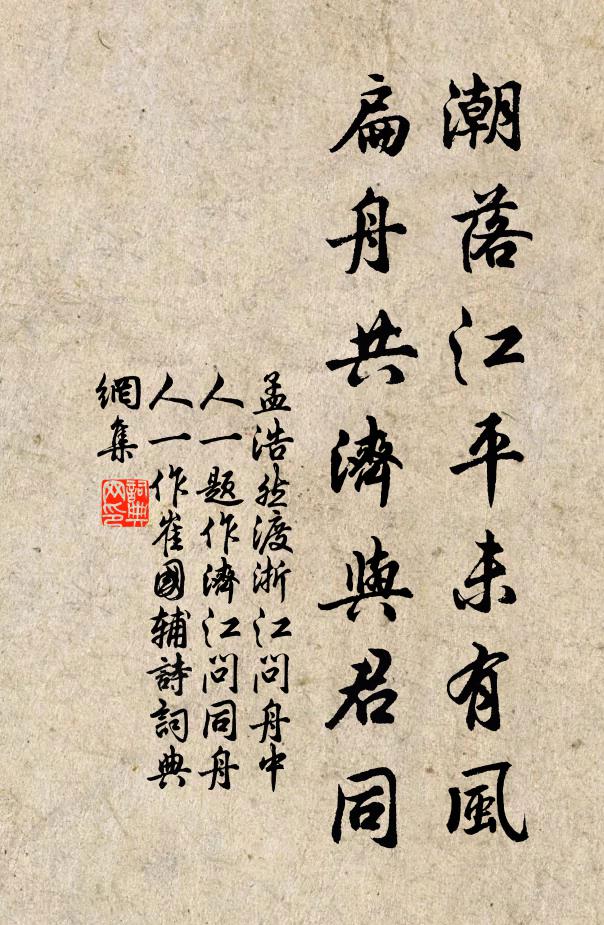 潮落江平未有風
扁舟共濟與君同
孟浩然渡浙江問舟中
人一題作濟江問同舟
人一作崔國輔詩詞典
網集
詞典
网印